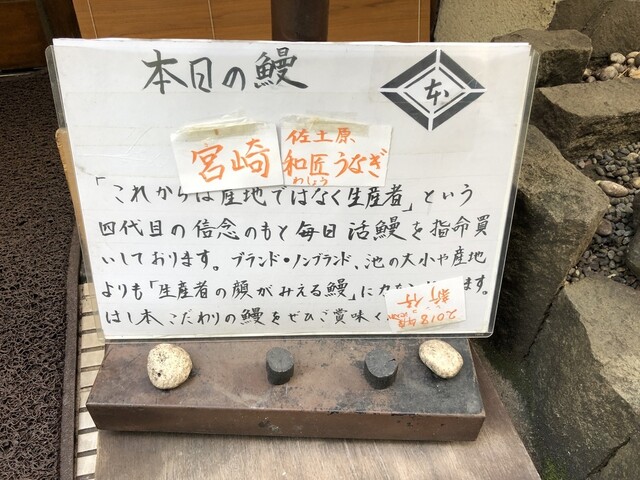 本日の鰻
本
宮崎
佐土原
和匠うなぎ
わしょう
「これからは産地ではなく生産者」という
四代目の信念のもと毎日活鰻を指命買
いしております。ブランド・ノンブランド、池の大小や産地
よりも「生産者の顔がみえる鰻」に
ます。
はし本こだわりの鰻をぜひご賞味く
2018年度
新仔